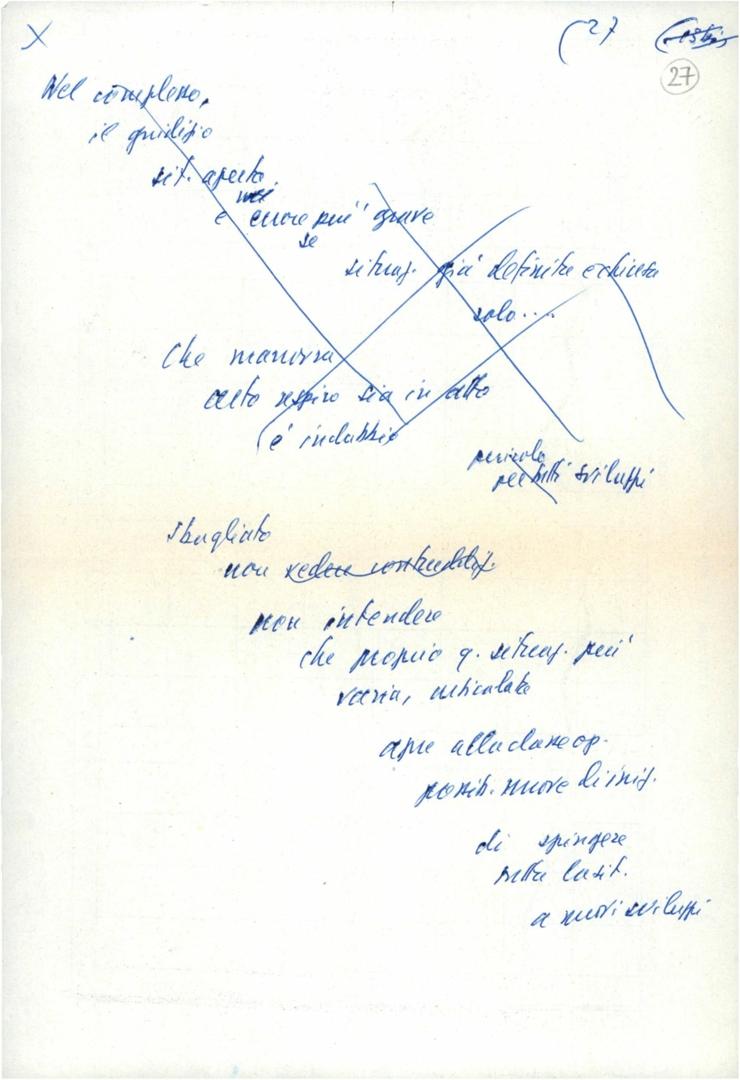 X
27
27
Nel complesso,
il giudizio
sit. aperta
noi
e errore più grave
se
situaz. già definita e chiusa
solo....
Che manovra
alto respiro sia in atto
è indubbio
pericolo
per tutti sviluppi
Sbagliato
non vedere contraddiz.
non intendere
che proprio q. situaz. più
varia, articolata
apre alla classe op.
possib. nuove di iniz.
di spingere
tutta la sit.
a nuovi sviluppi